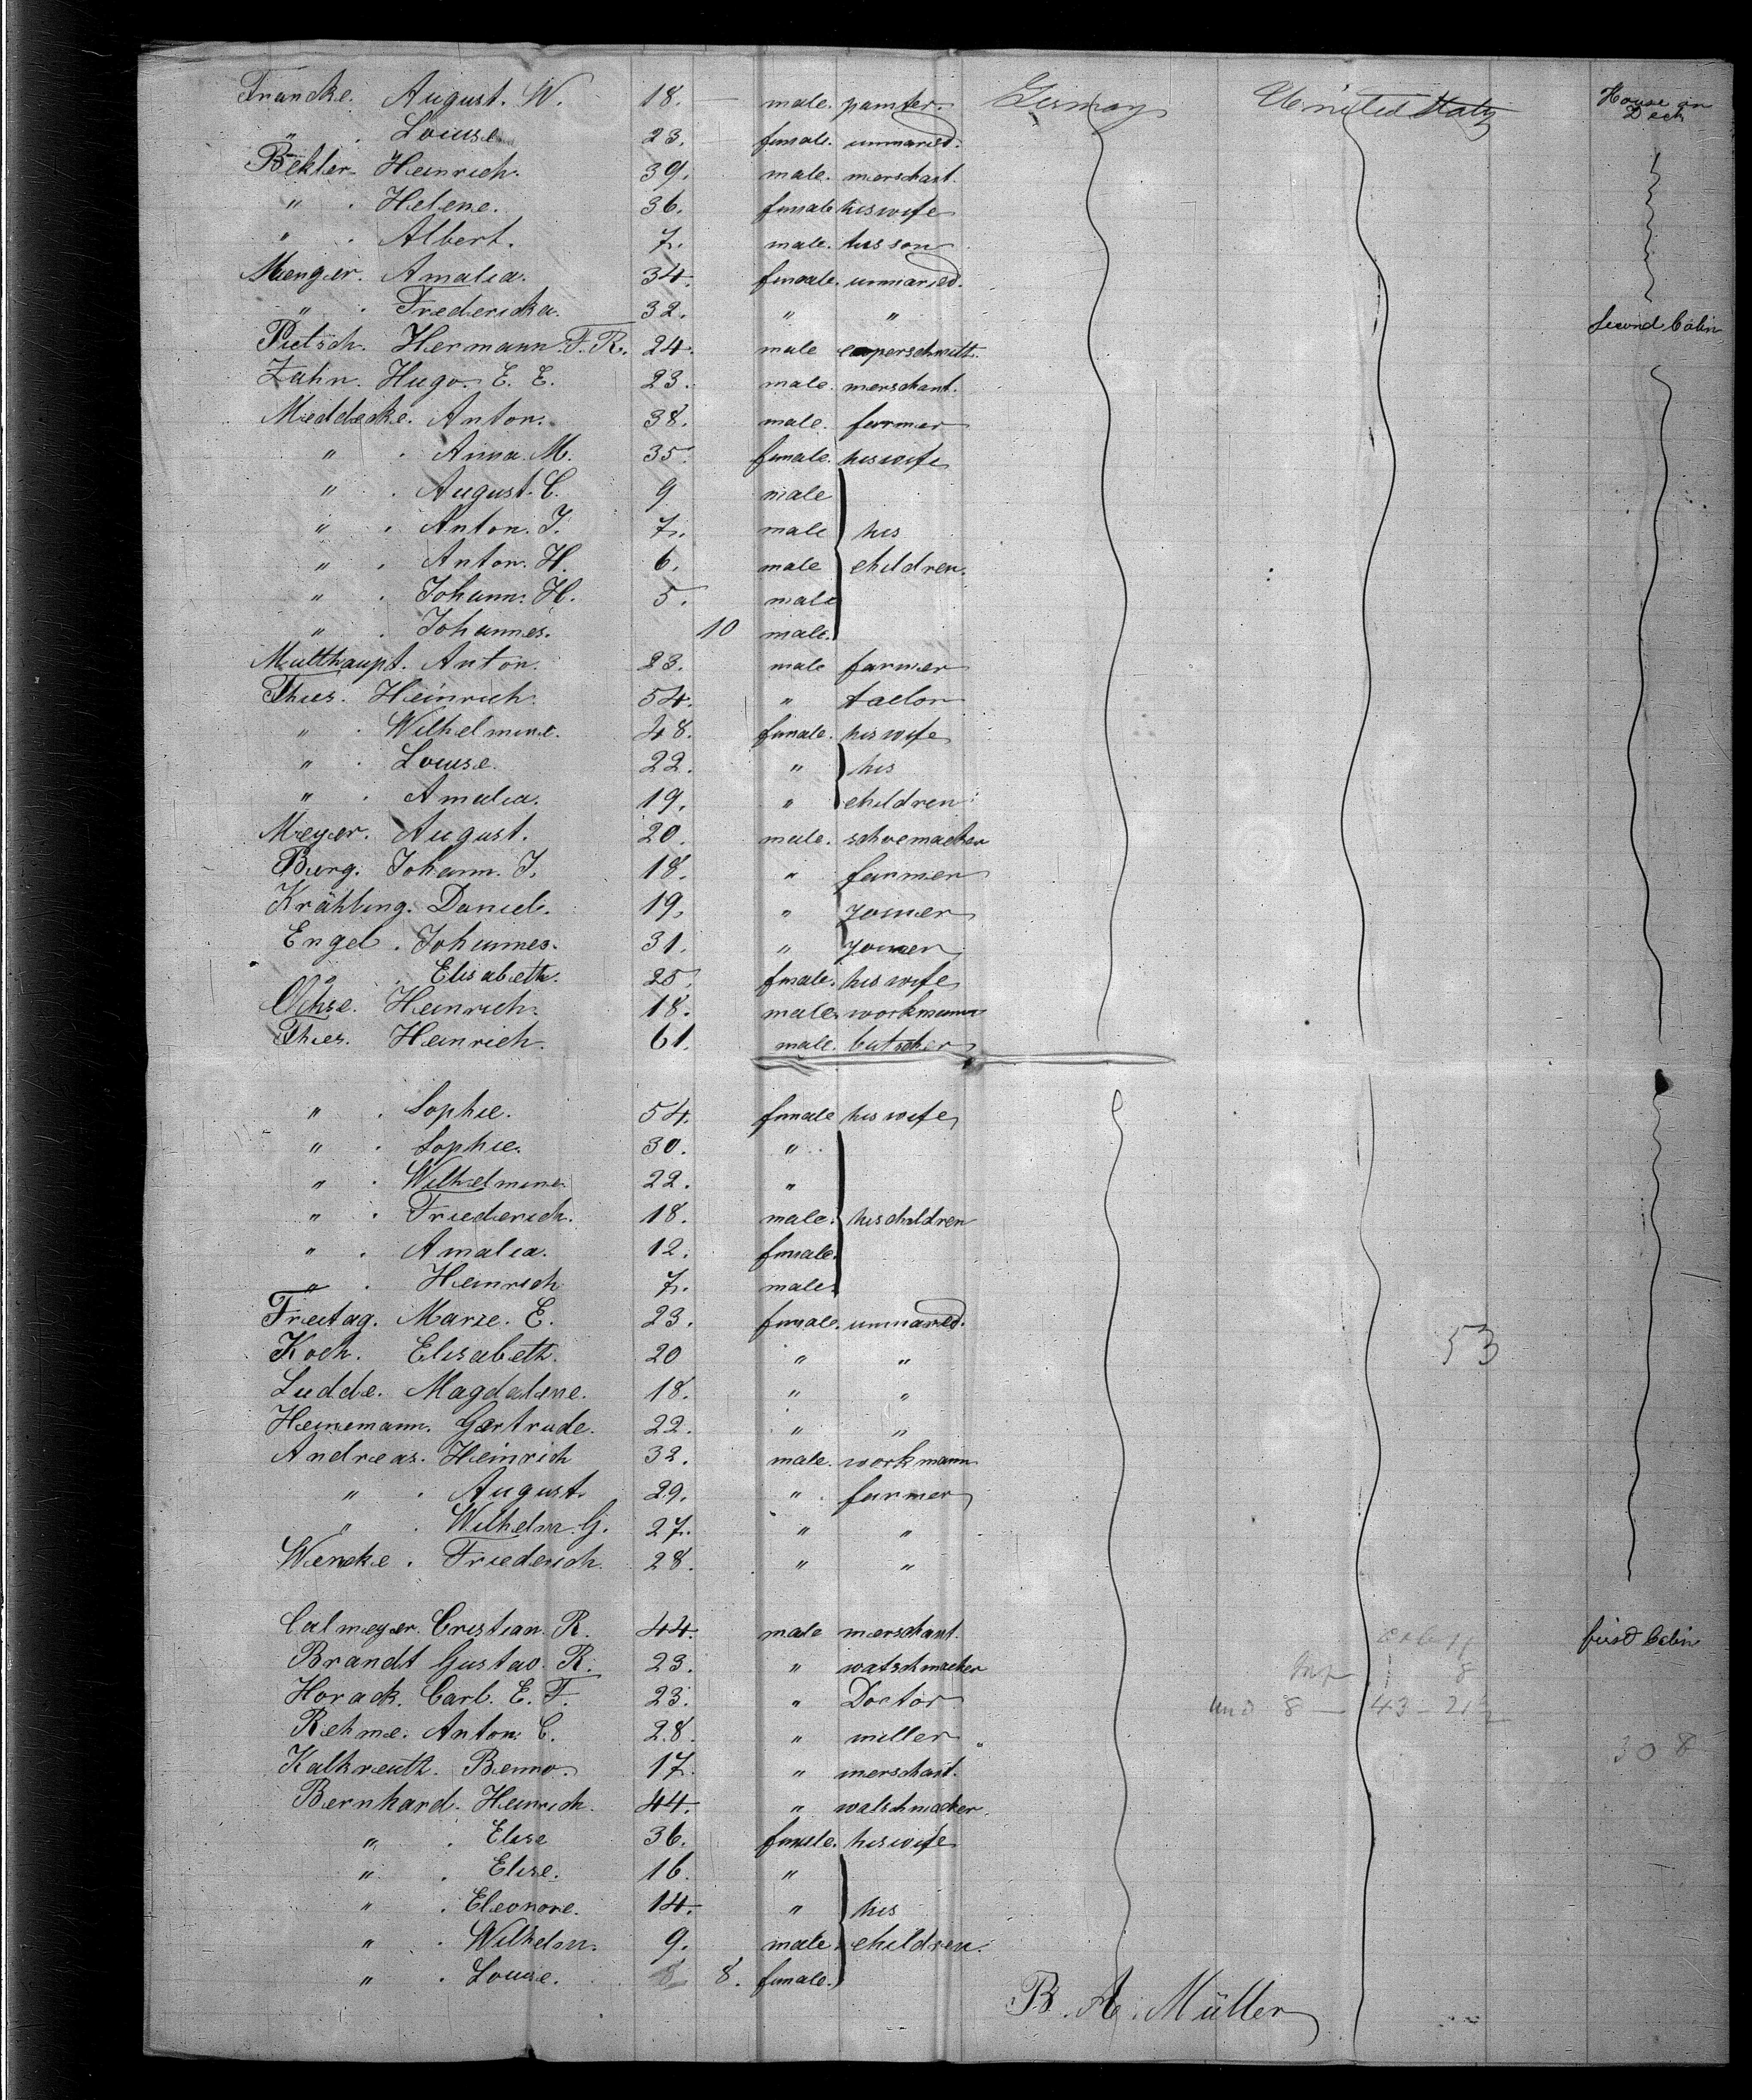 Francke. August. W. 18. male. painter. Germay Uinited Stats House on Deck
" . Louise 23. female. unmaried.
Bekler. Heinrich. 39. male. merschant.
" . Helene. 36. female his wife
" . Albert. 7. male. his son
Menger. Amalia. 34. female. unmaried.
" . Fredericka. 32. " " second Cabin
Pietsch. Hermann. F. R. 24. male cooperschmitt.
Zahn. Hugo. E. E. 23. male. merschant.
Meddecke. Anton. 38. male. farmer
" . Anna. M. 35. female. his wife
" . August. C. 9 male
" . Anton. J. 7. male his
" . Anton. H. 6. male children.
" . Johann. H. 5. male
" . Johannes. 10 male.
Multhaupt. Anton. 23. male farmer
Thies. Heinrich. 54. " taelor
" . Wilhelmine. 48. female. his wife
" . Louise. 22. " his
" . Amalia. 19. " children
Meyer. August. 20. male. schoemacker
Burg. Johann. J. 18. " farmer
Krähling. Daniel. 19. " joiner
Engel. Johannes. 31. " joiner
" . Elisabeth. 25. female. his wife
Ochse. Heinrich. 18. male. workmann
Thies. Heinrich. 61. male. butscher
" . Sophie. 54. female his wife
" . Sophie. 30. "
" . Wilhelmine. 22. "
" . Friederich. 18. male. his children
" . Amalia. 12. female.
" . Heinrich 7. male.
Freitag. Marie. E. 23. female. unmaried.
Koch. Elisabeth. 20 " " 53
Ludde. Magdalene. 18. " "
Heinemann. Gertrude. 22. " "
Andreas. Heinrich 32. male. workmann
" . August. 29. " farmer
" . Wilhelm. G. 27. " "
Wencke. Friederich. 28. " "
Calmeyer. Cristian. R. 44. male merschant. first Cabin
Brandt Gustav. R. 23. " watschmacker 8
Horack. Carl. E. F. 23. " Doctor und 8 — 43 — 21½
Rehme. Anton. C. 28. " miller
Kalkreuth. Benno. 17. " merschant. 308
Bernhard. Heinrich. 44. " watschmacker.
" . Elise 36. female. his wife
" . Elise. 16. "
" . Eleonore. 14. " his
" . Wilhelm. 9. male. children.
" . Louise. 8. female.
B. A. Müller